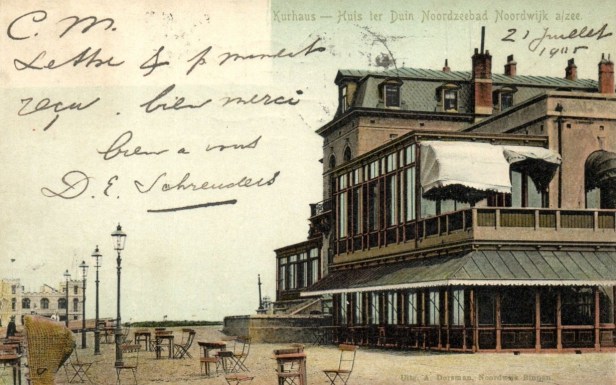 Kurhaus — Huis ter Duin Noordzeebad Noordwijk a/zee.
21 Juillet
1905
C. M.
Lettre & p mandat
reçu. bien merci
bien a vous
D. E. Schreuders
Uitg. A. Dorsman, Noordwijk Binnen.